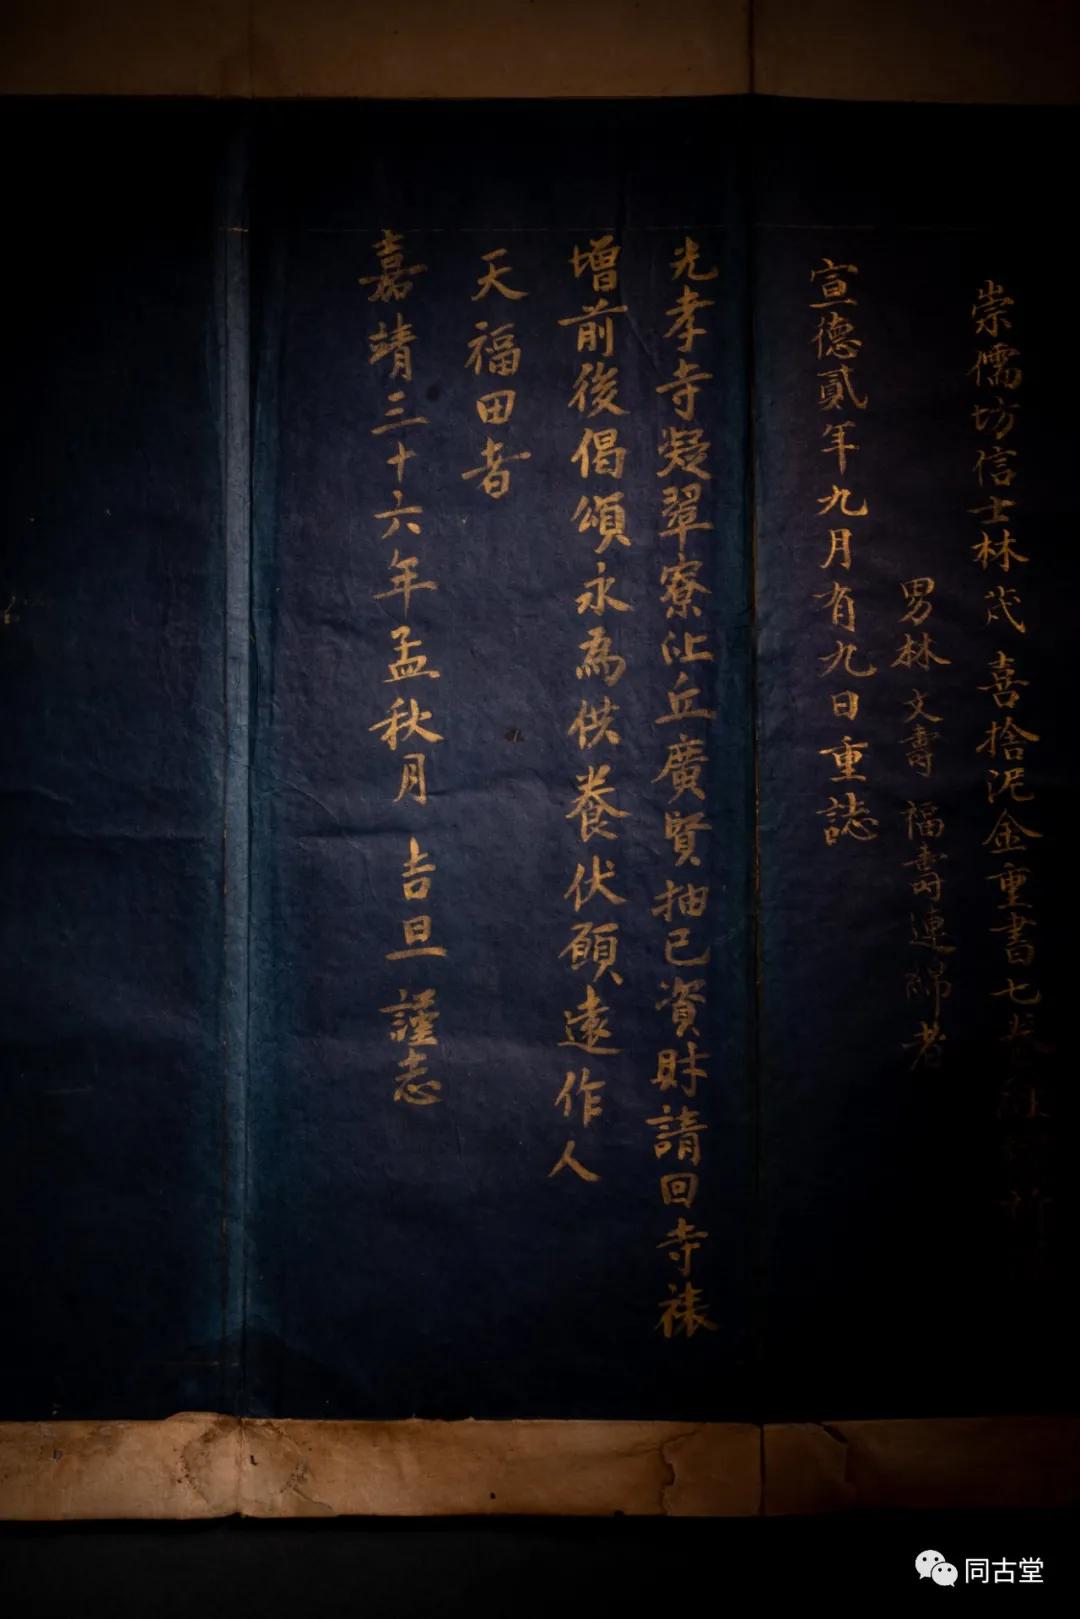 崇儒坊信士林茂喜捨泥金重書七卷
男林文壽福壽連綿者
宣德貳年九月有九日重誌
光孝寺凝翠寮比丘廣賢抽己資財請回寺裱
增前後偈頌永為供養伏願遠作人
天福田者
嘉靖三十六年孟秋月吉旦謹志
同古堂